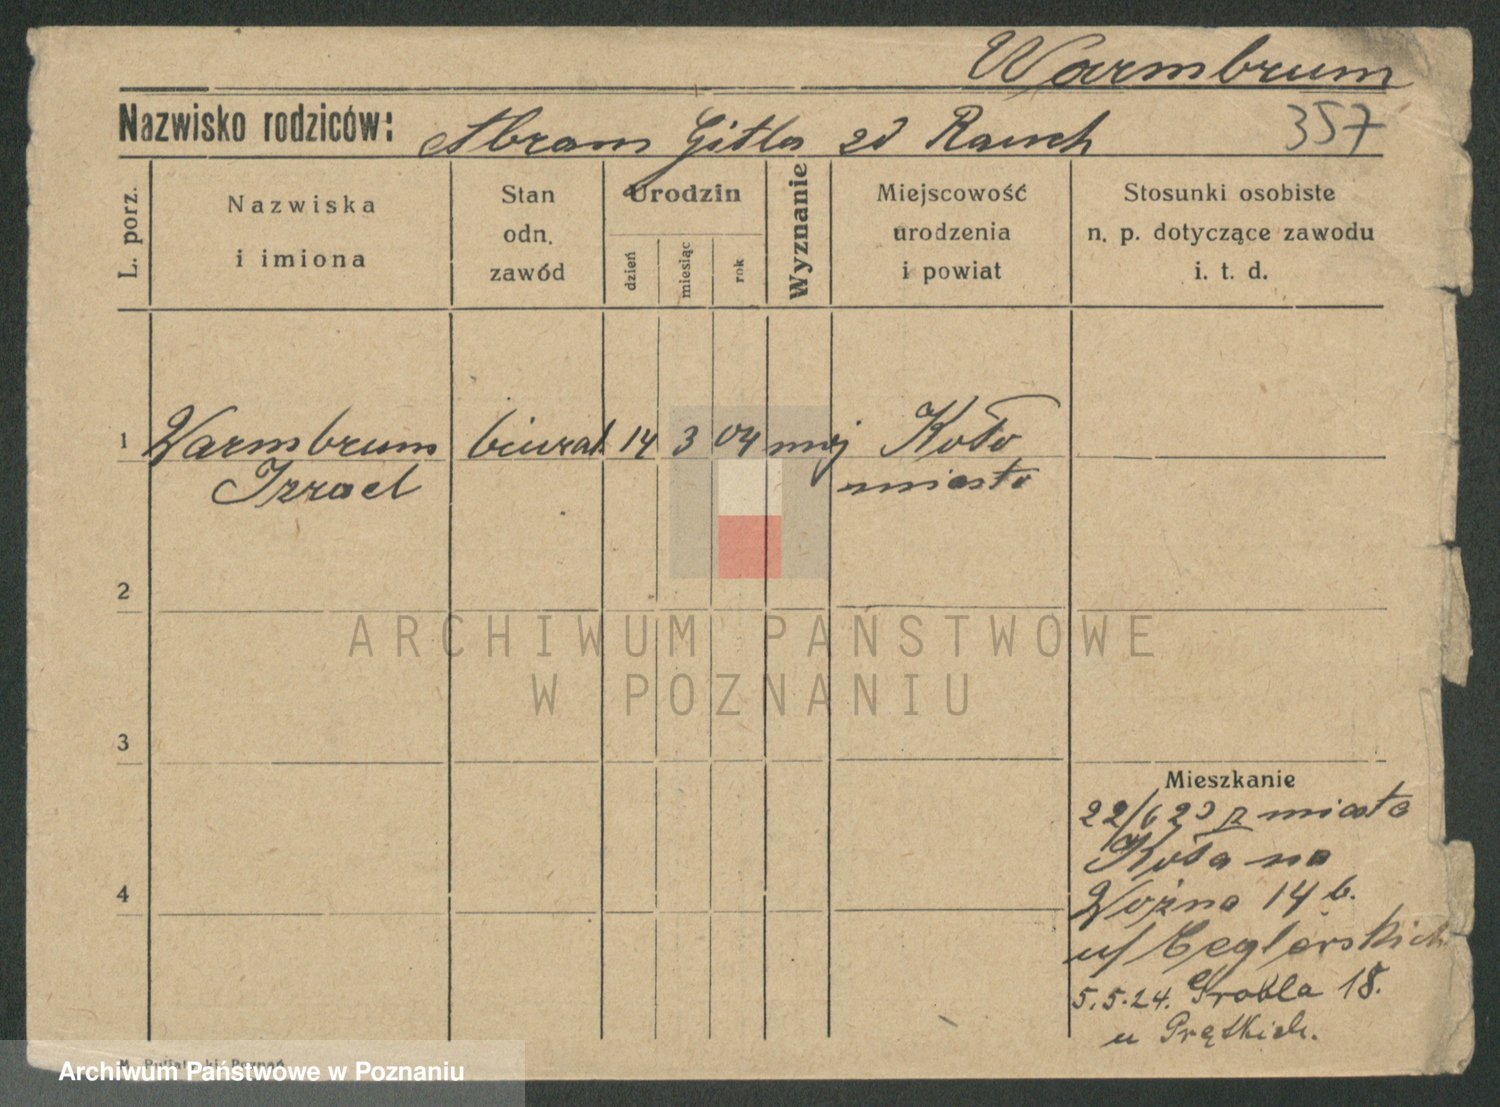 Warmbrum
Nazwisko rodziców: Abram Gitla zd Rauch 357
L. porz.
Nazwiska
i imiona
Stan
odn.
zawód
Urodzin
dzień
miesiąc
rok
Wyznanie
Miejscowość
urodzenia
i powiat
Stosunki osobiste
n. p. dotyczące zawodu
i. t. d.
1 Warmbrum biural 14 3 04 moj Koło
Izrael miasto
2
ARCHIWUM PAŃSTWOWE
W POZNANIU
3
Mieszkanie
22/6 23 z miasta
Koła na
4
Woźna 14 b.
u/ Ceglarskich
5.5.24. Grobla 18.
u Prętkich.
Poznań
Archiwum Państwowe w Poznaniu